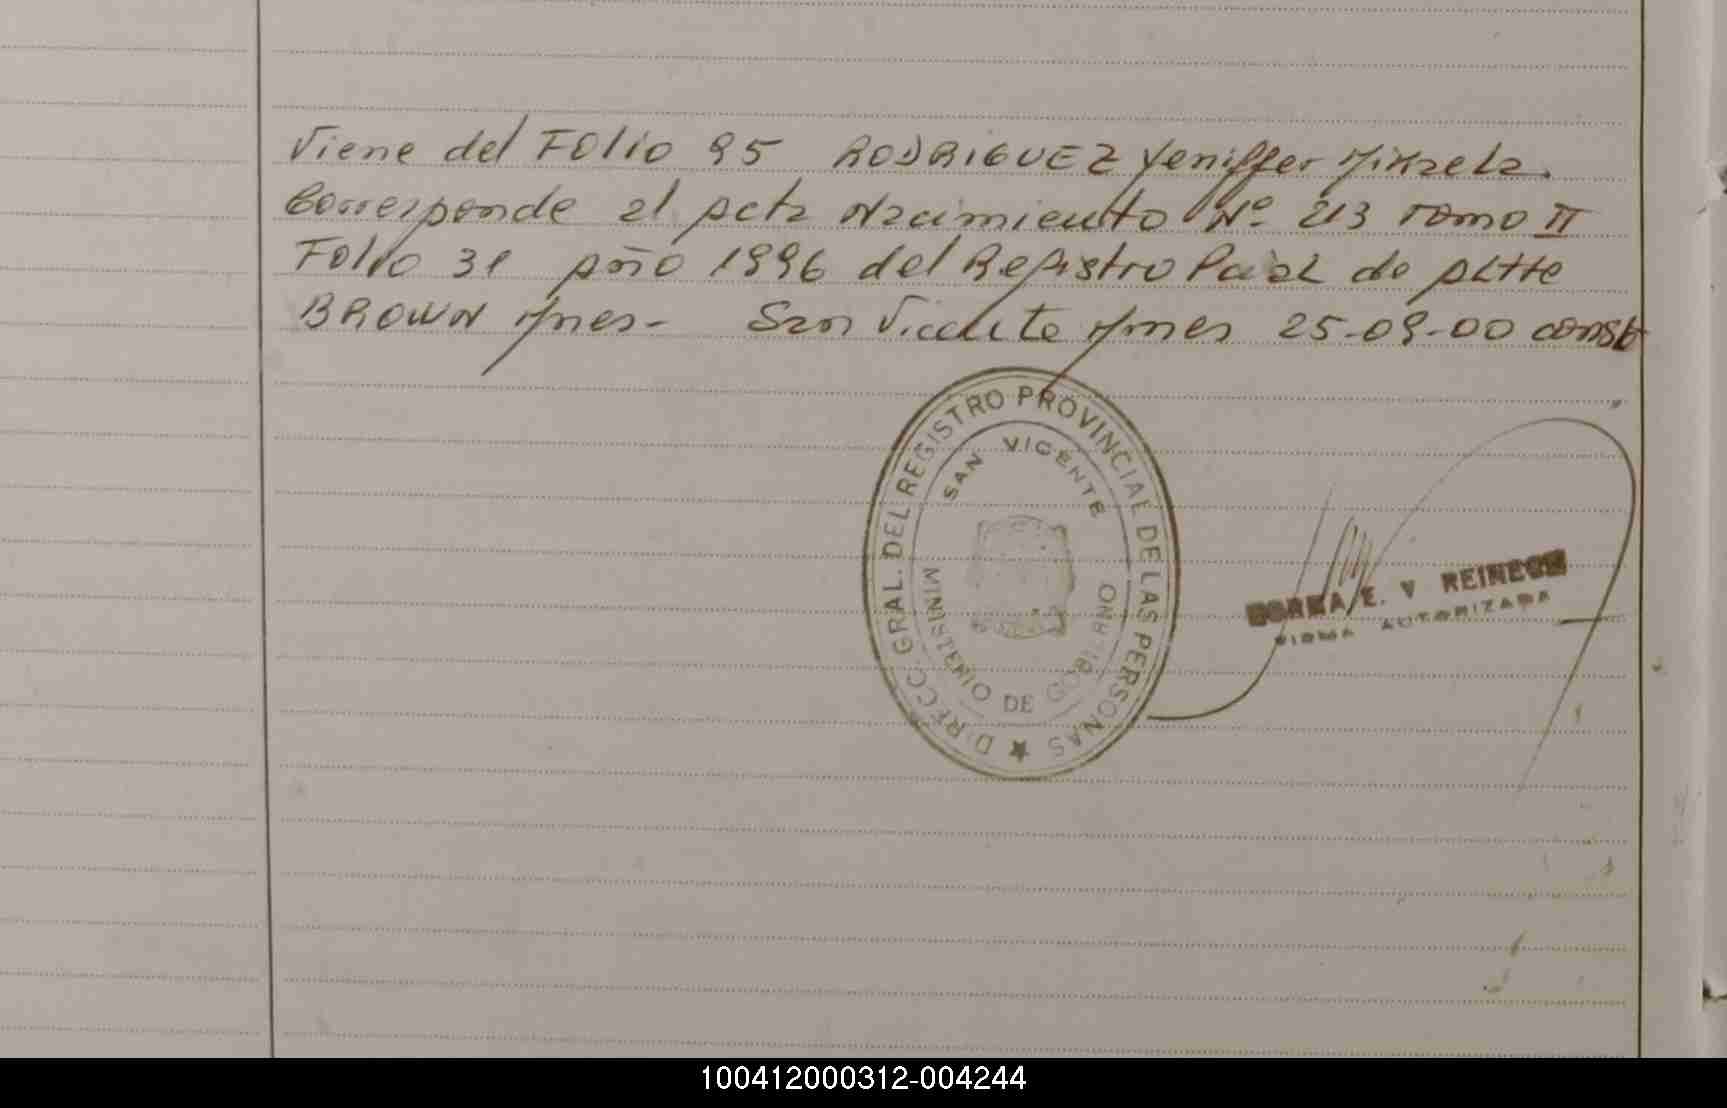 Viene del Folio 95 RODRIGUEZ Yeniffer Mikaela.
Corresponde al acta Nacimiento Nº 213 Tomo II
Folio 31 año 1996 del Registro Pcial de Altte
BROWN Mnes- San Vicente Mnes 25-09-00 conste
DIRECC. GRAL. DEL REGISTRO PROVINCIAL DE LAS PERSONAS
SAN VICENTE
MINISTERIO DE GOBIERNO
E. V REINECK
FIRMA AUTORIZADA
100412000312-004244